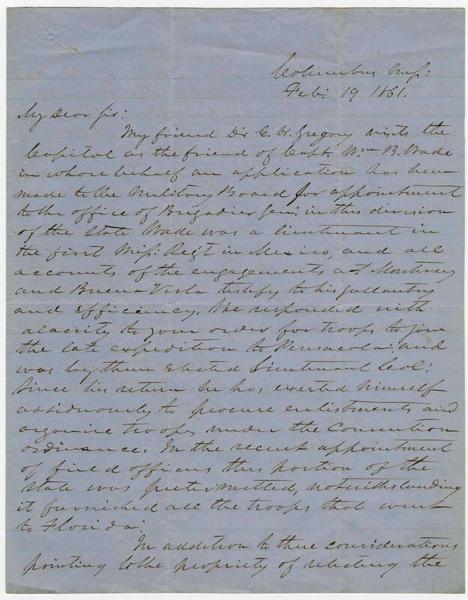 Columbus Miss:
Feb: 19 1861.
My Dear Sir:
My friend Dr. C. H. Gregory visits the
Capitol as the friend of Capt. Wm B. Wade
in whose behalf an application has been
made to the Military Board for appointment
to the office of Brigadier Genl in this division
of the State Wade was a lieutenant in
the first Miss: Regt in Mexico, and all
accounts of the engagements at Monterey
and Buena Vista testify to his gallantry
and efficiency. He responded with
alacrity to your order for troops to join
the late expedition to Pensacola: and
was by them elected Lieutenant Col:
Since his return he has exerted himself
assiduously to procure enlistments and
organize troops under the Convention
ordinance. In the recent appointment
of field officers this portion of the
State was pretermitted, notwithstanding
it furnished all the troops that went
to Florida.
In addition to these considerations
pointing to the propriety of selecting the